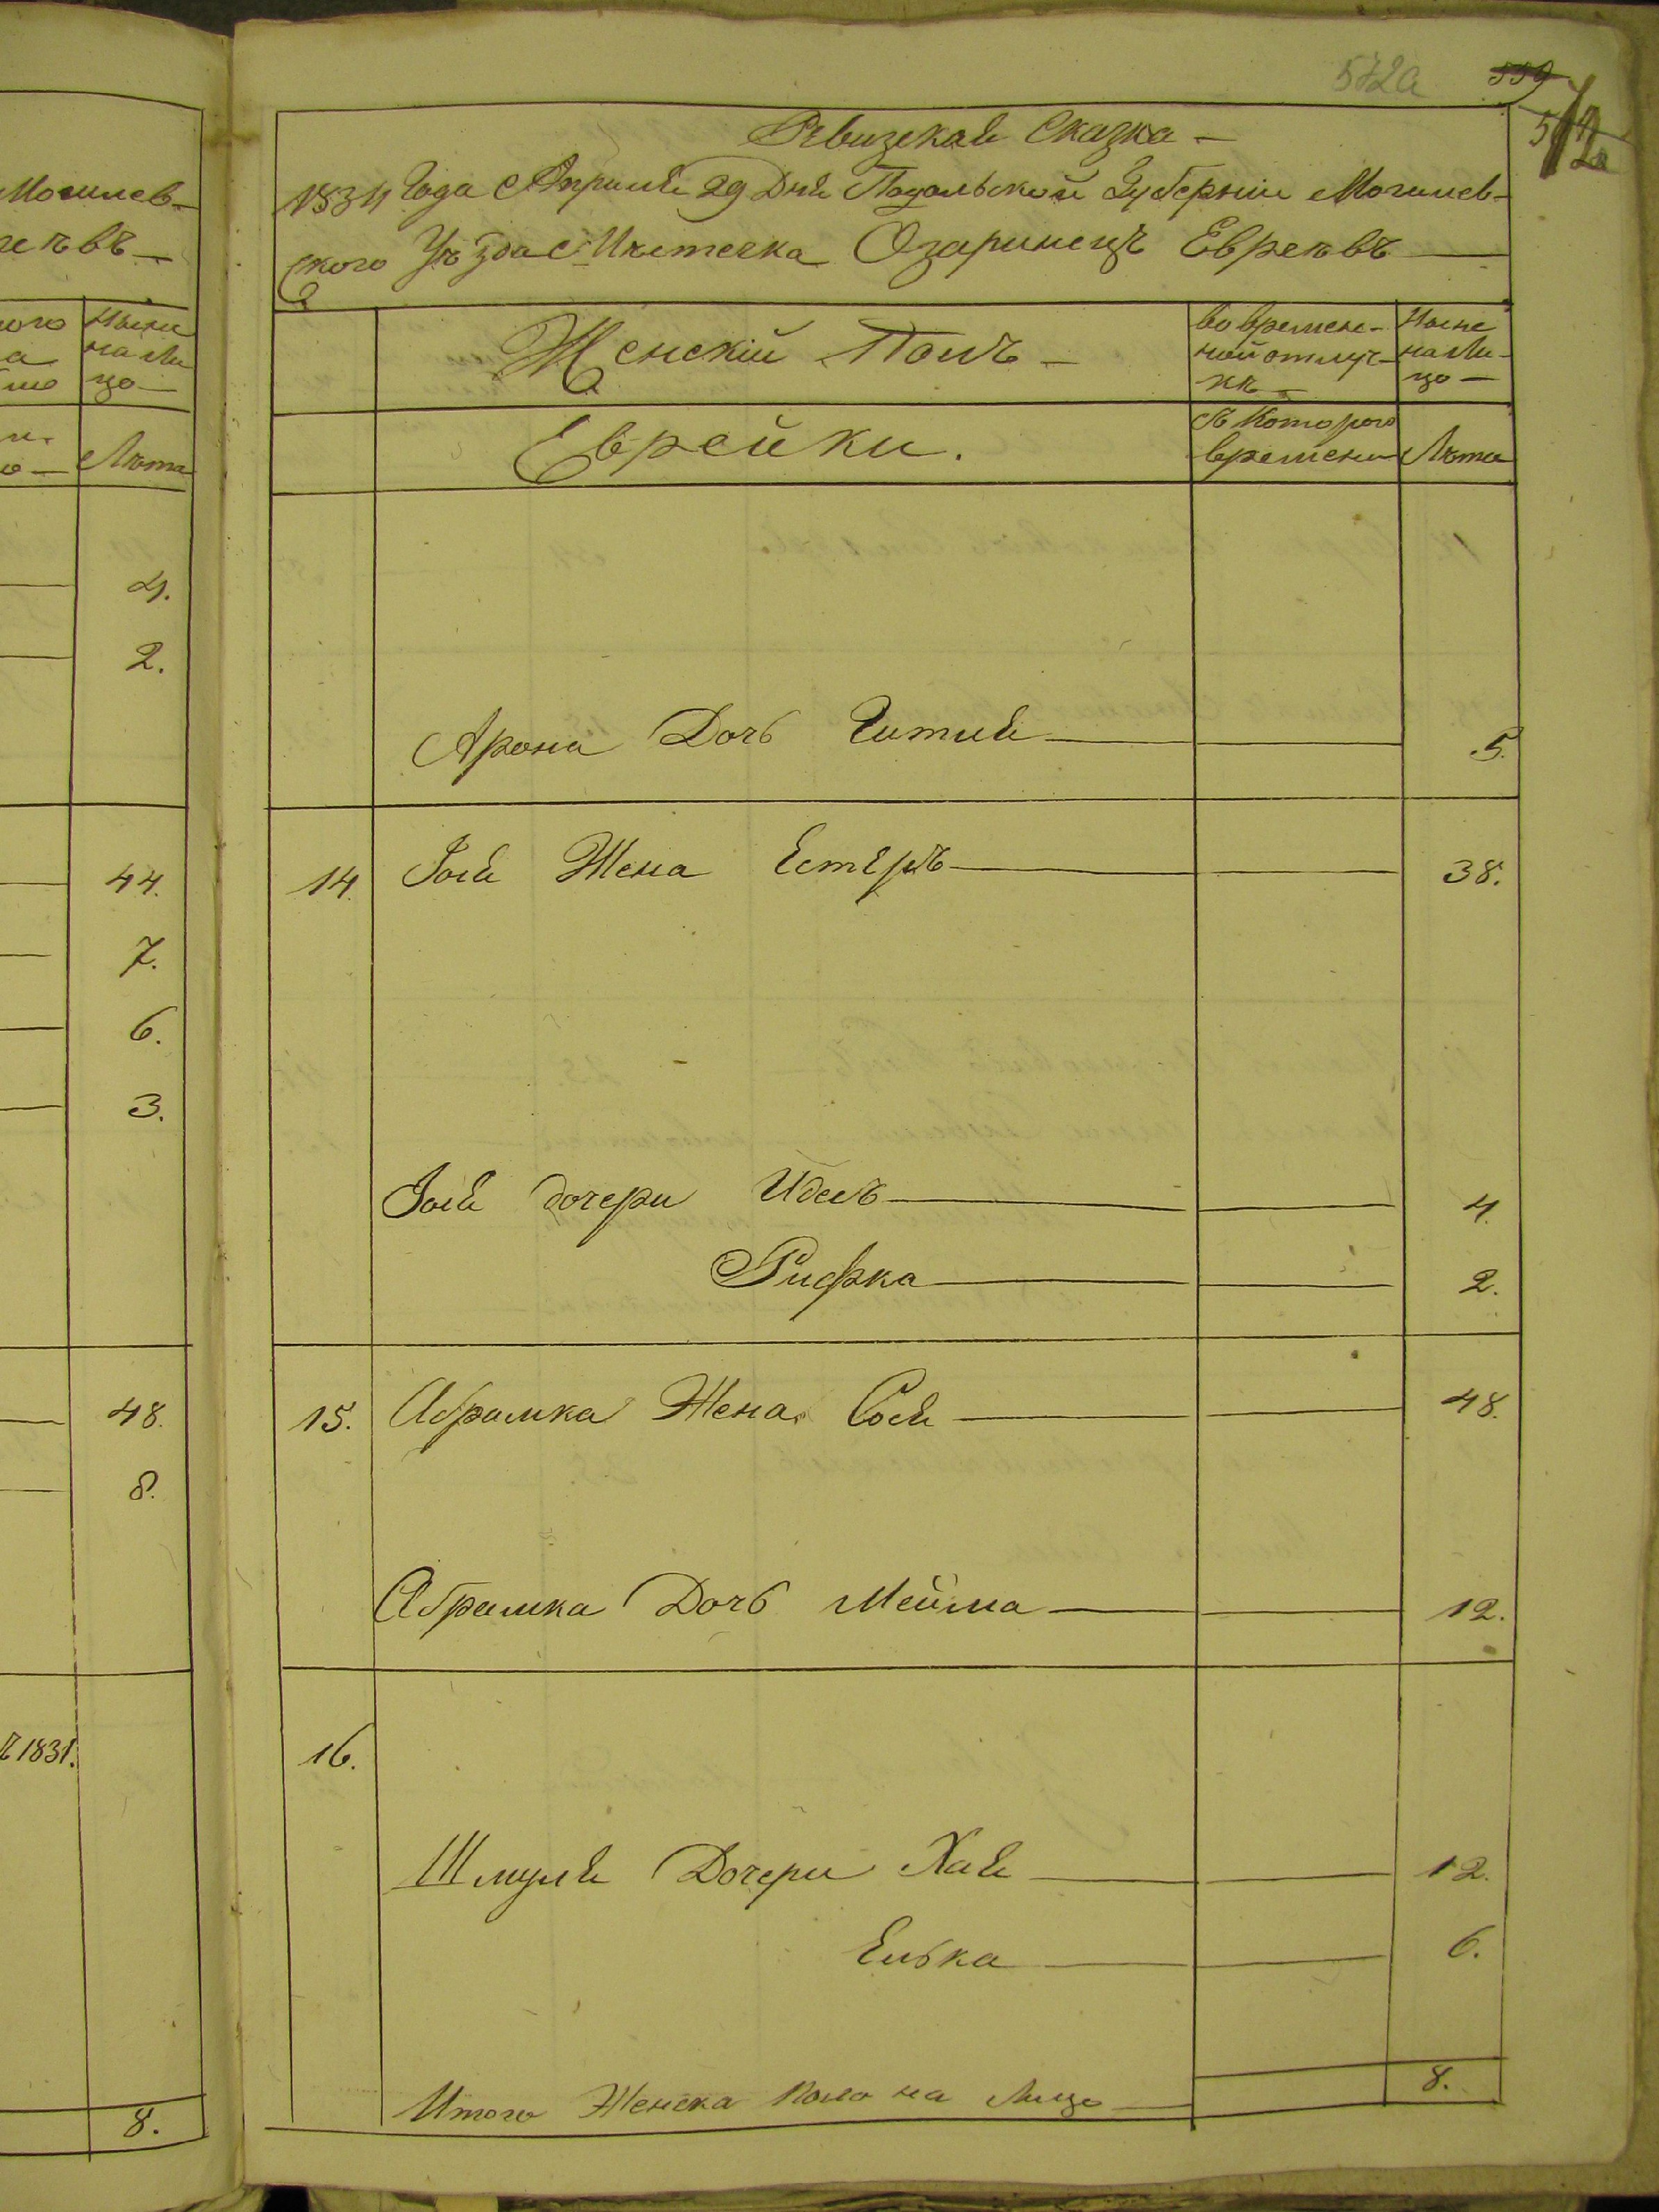 572а 559
572а
Ревизская Сказка —
1834 Года Апреля 29 Дня Подольской Губернии Могилев-
ского Уѣзда Мѣстечка Озаринецъ Евреѣвъ —
Женский Полъ —
во времен-
ной отлуч-
кѣ —
Ныне
на Ли-
цо —
Еврейки.
съ Которого
времени
Лѣта
Арона Дочь Гитля — — 5.
14 Іося Жена Естеръ — — 38.
Іося дочери Идесъ — — 4.
Рифка — — 2.
15. Абрамка Жена Сося — — 48.
Абрамка Дочь Мейма — — 12.
16.
Шмуля Дочери Хая — — 12.
Елька — — 6.
Итого Женска Пола на Лицо — 8.
Могилев-
еѣвъ —
Ныне
на Ли
цо —
Лѣта
4.
2.
44.
7.
6.
3.
48.
8.
1831.
8.